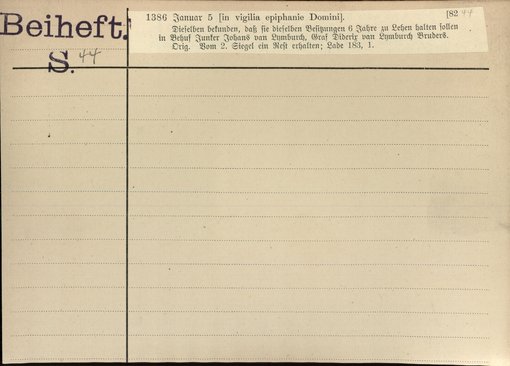 Beiheft.
S. 44
1386 Januar 5 [in vigilia epiphanie Domini]. [82 44
Dieselben bekunden, daß sie dieselben Besitzungen 6 Jahre zu Lehen halten sollen
in Behuf Junker Johans van Lymburch, Graf Diderix van Lymburch Bruders.
Orig. Vom 2. Siegel ein Rest erhalten; Lade 183, 1.